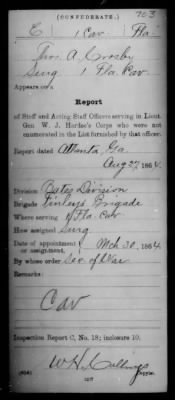 763
(CONFEDERATE.)
C | 1 Cav | Fla.
Thos. A. Crosby
Surg 1 Fla. Cav.
Appears on a
Report
of Staff and Acting Staff Officers serving in Lieut.
Gen W. J. Hardee's Corps who were not
enumerated in the List furnished by that officer.
Report dated Atlanta, Ga.
Aug 27, 1864.
Division Bates Division
Brigade Finleys Brigade
Where serving 1 Fla. Cav
How assigned Surg
Date of appointment or assignment, Mch 30, 1864
By whose order Sec of War
Remarks:
Cav
Inspection Report C, No. 18; inclosure 10.
Copyist.